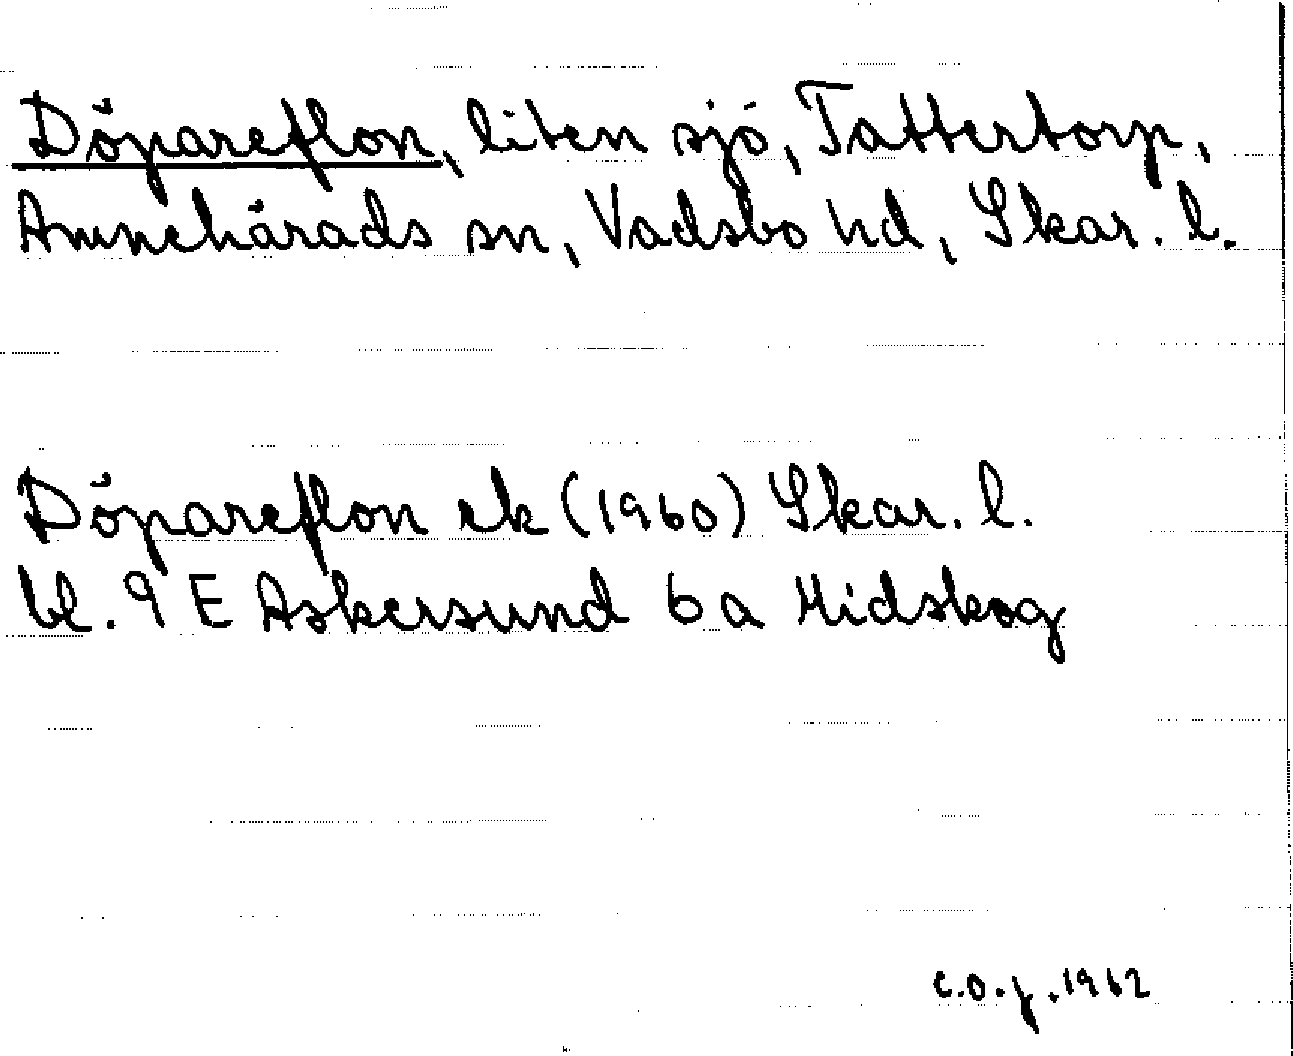 Döpareflon, liten sjö, Tattertorp,
Amnehärads sn, Vadsbo hd, Skar. l.
Döpareflon ek (1960) Skar. l.
bl. 9 E Askersund 6 a Hidskog
C.O.J. 1962